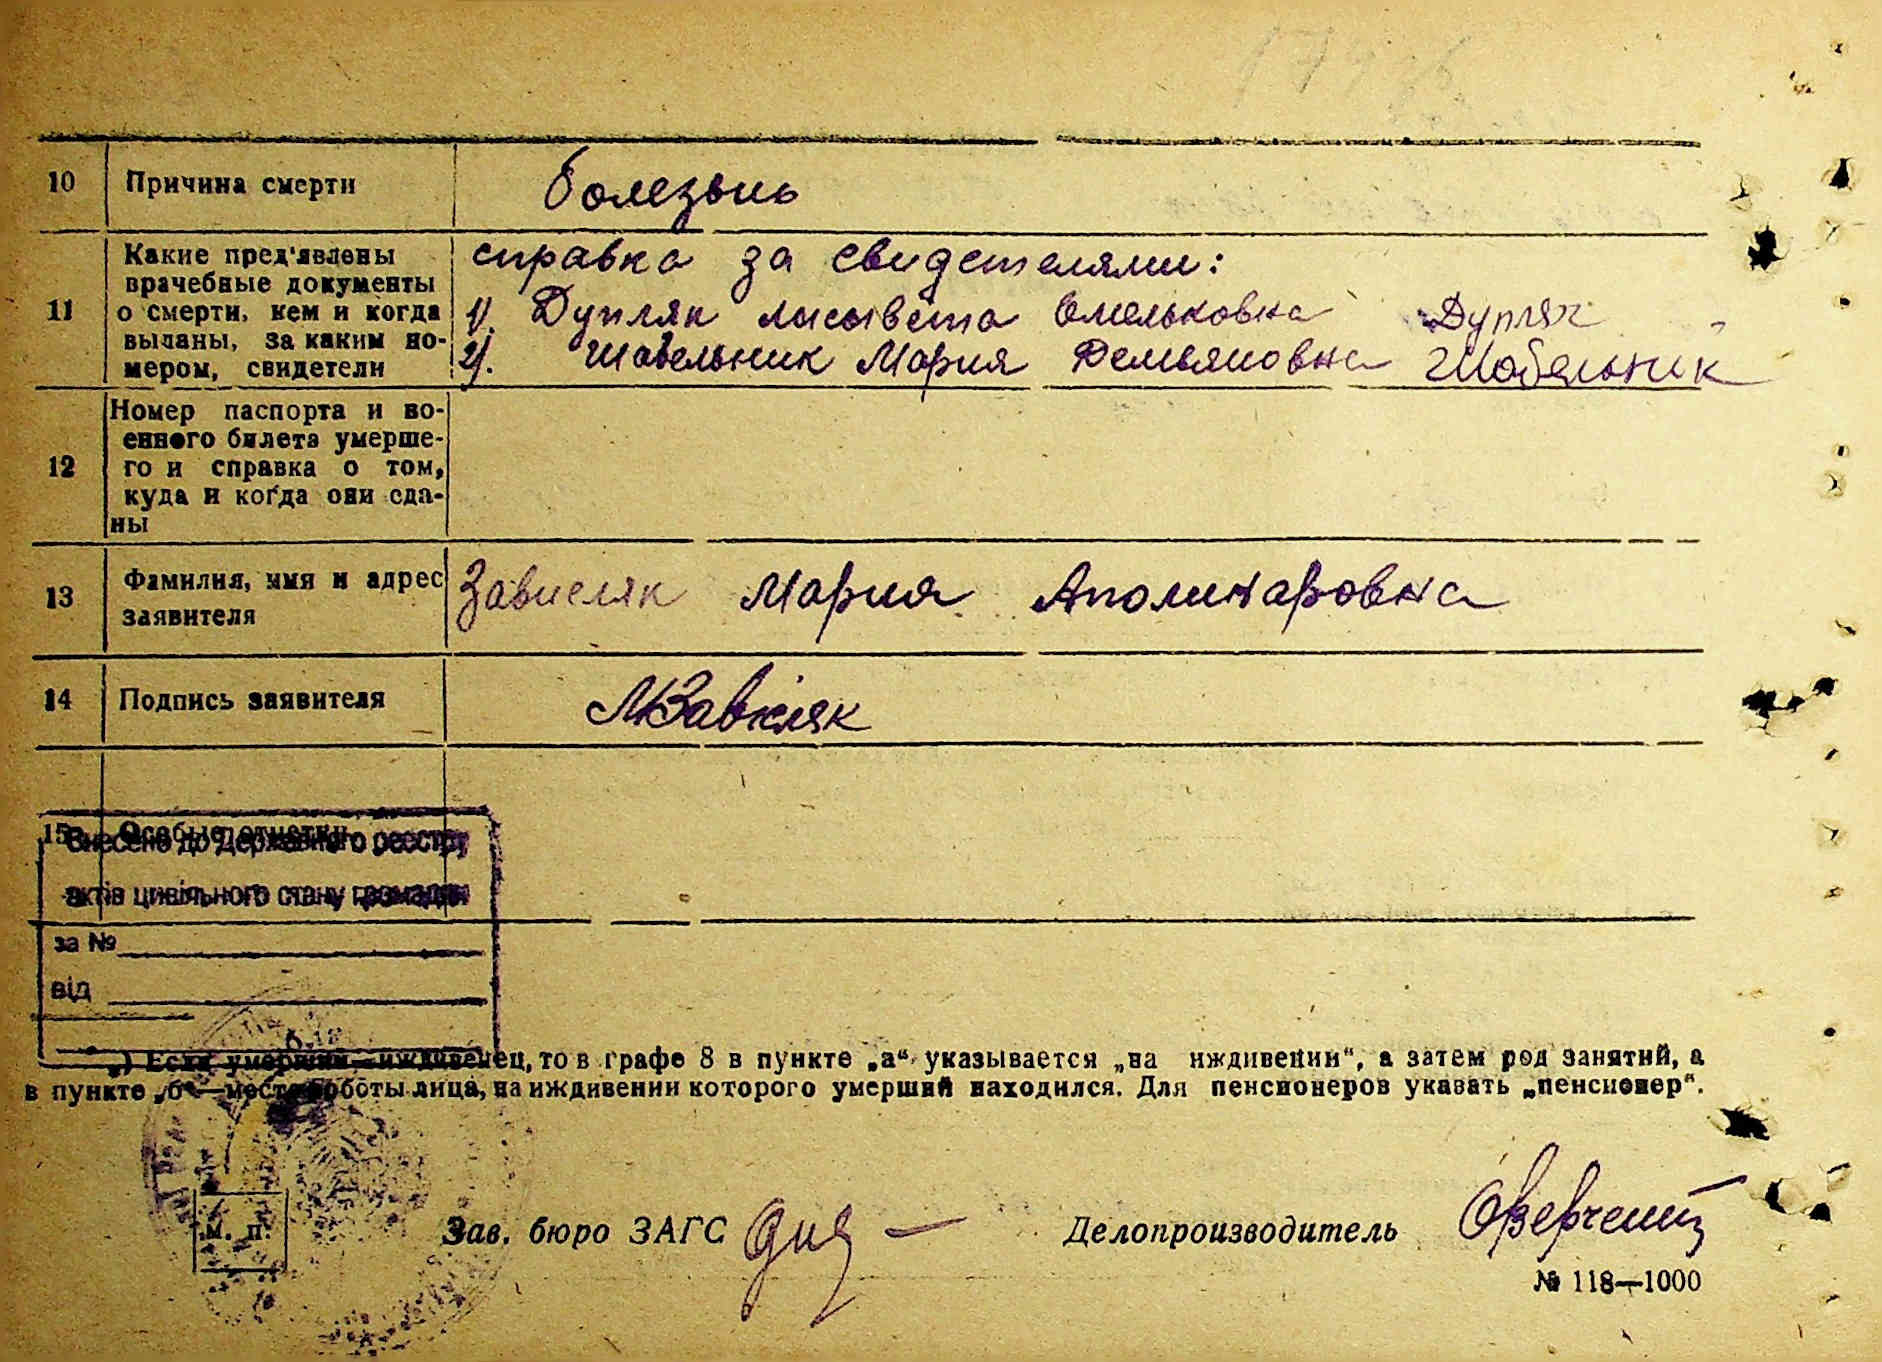 10 Причина смерти болезвнь
11 Какие пред'явлены врачебные документы о смерти, кем и когда выданы, за каким номером, свидетели
справка за свидетелями:
1). Дупляк лисывета Омельковна Дупляк
2). Шабельник Мария Демьяновна Шабельник
12 Номер паспорта и военного билета умершего и справка о том, куда и когда они сданы
13 Фамилия, имя и адрес заявителя Зависляк Мария Аполинаровна
14 Подпись заявителя МЗавісляк
15 Особые отметки
Внесено до Державного реєстру
актів цивільного стану громадян
за №
від
*) Если умерший—иждивенец, то в графе 8 в пункте „а“ указывается „на иждивении“, а затем род занятий, а
в пункте „б“—место роботы лица, на иждивении которого умерший находился. Для пенсионеров указать „пенсионер“.
м. п.
Зав. бюро ЗАГС Делопроизводитель
№ 118—1000